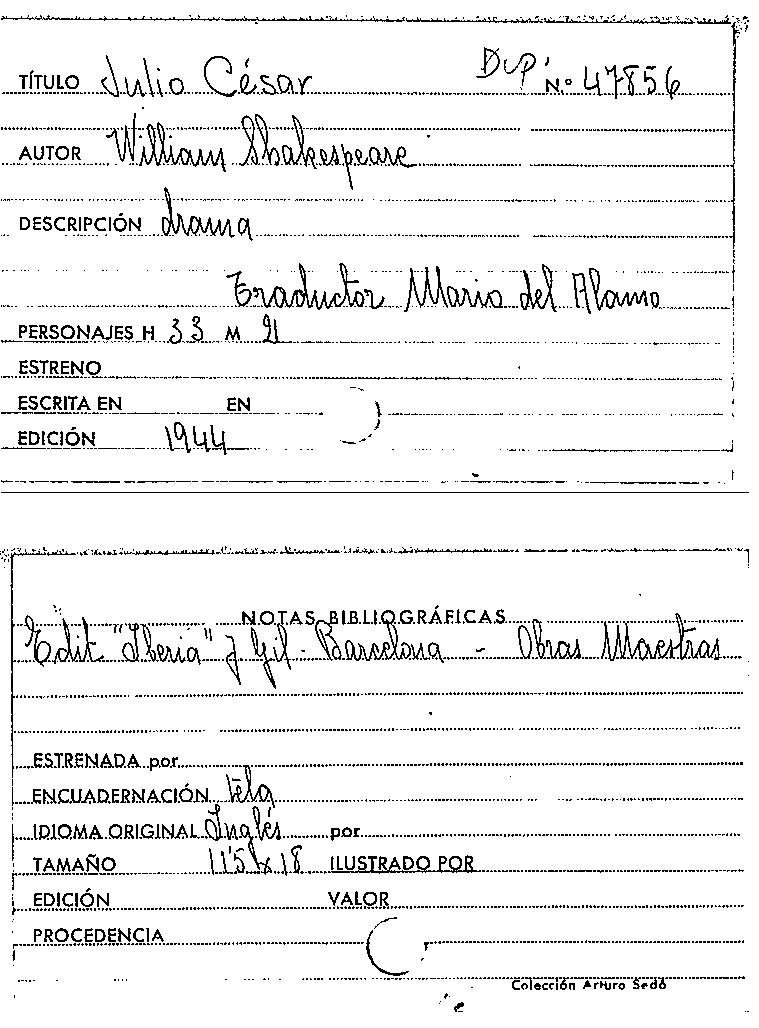 TÍTULO Julio César Dup. N.º 47856
AUTOR William Shakespeare
DESCRIPCIÓN drama
Traductor Mario del Alamo
PERSONAJES H 33 M 21
ESTRENO
ESCRITA EN EN
EDICIÓN 1944
NOTAS BIBLIOGRÁFICAS
Edit "Iberia" J Gil - Barcelona - Obras Maestras
ESTRENADA por
ENCUADERNACIÓN tela
IDIOMA ORIGINAL Inglés por
TAMAÑO 11'5 x 18 ILUSTRADO POR
EDICIÓN VALOR
PROCEDENCIA
Colección Arturo Sedó